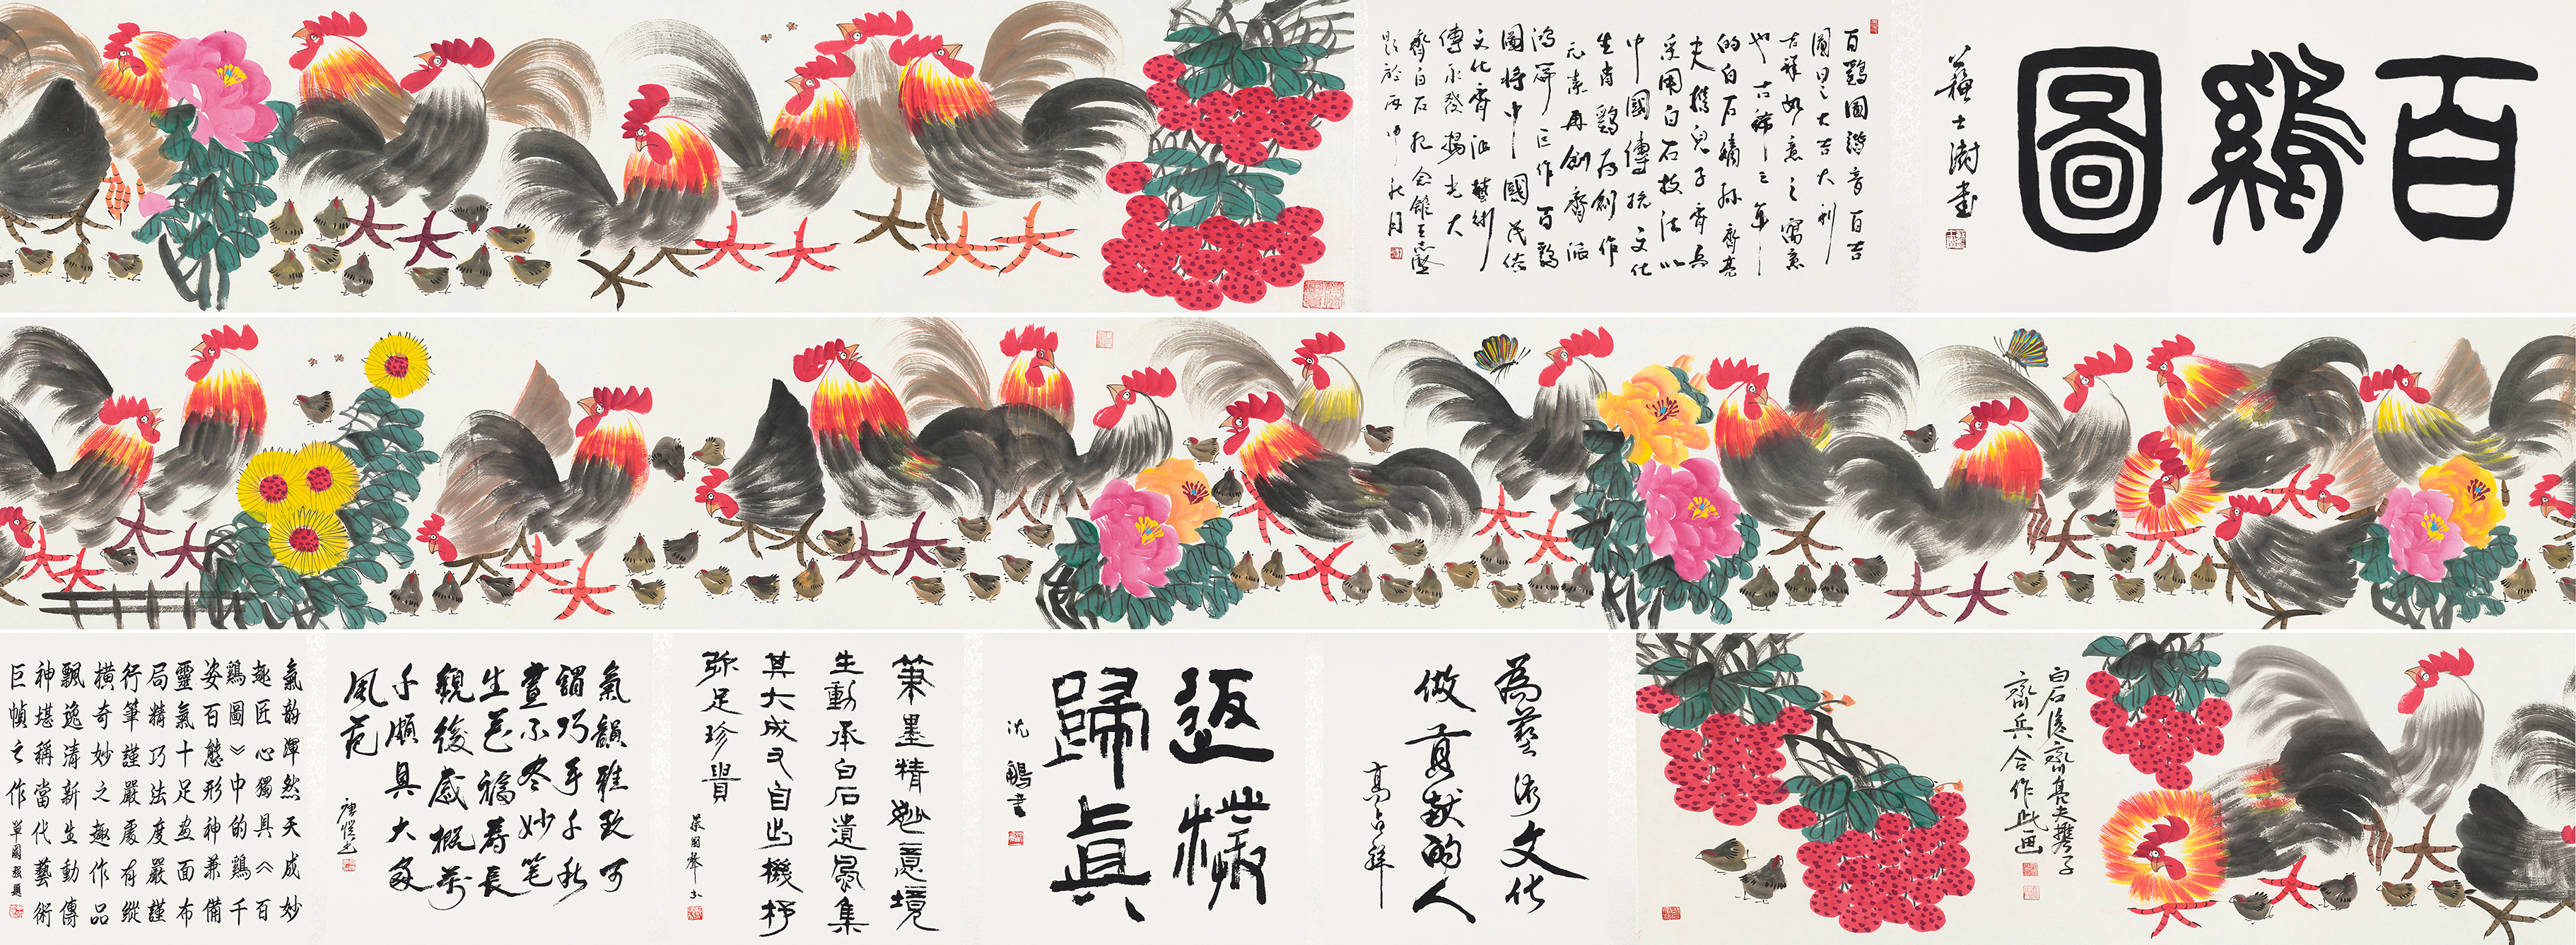 百鷄圖
蘇士澍書
百鷄圖諧音百吉
圖曰之大吉大利
吉祥如意之寓意
也古稀之年
的白石嫡孫齊亮
夫攜兒子齊兵
采用白石技法以
中國傳統文化
生肖鷄为創作
元素再創齊派
鴻篇巨作百鷄
圖將中國民俗
文化齊派藝術
傳承發揚光大
齊白石紀念館王志堅
題於丙申秋月
白石後裔齊亮夫携子
齊兵合作此画
為藝術文化
做貢献的人
高占祥
返樸
歸真
沈鵬書
筆墨精妙意境
生動承白石遺風集
其大成又自出機杼
弥足珍貴
蘇國聲書
氣韻雅致可
謂巧手千秋
畫不尽妙笔
生花福寿長
觀後感概萬
千頗具大家
風范
唐愷書
氣韵渾然天成妙
趣匠心獨具《百
鷄圖》中的鷄千
姿百態形神兼備
靈氣十足畫面布
局精巧法度嚴謹
行筆謹嚴處有縱
橫奇妙之趣作品
飄逸清新生動傳
神堪稱當代藝術
巨幀之作
單國强題